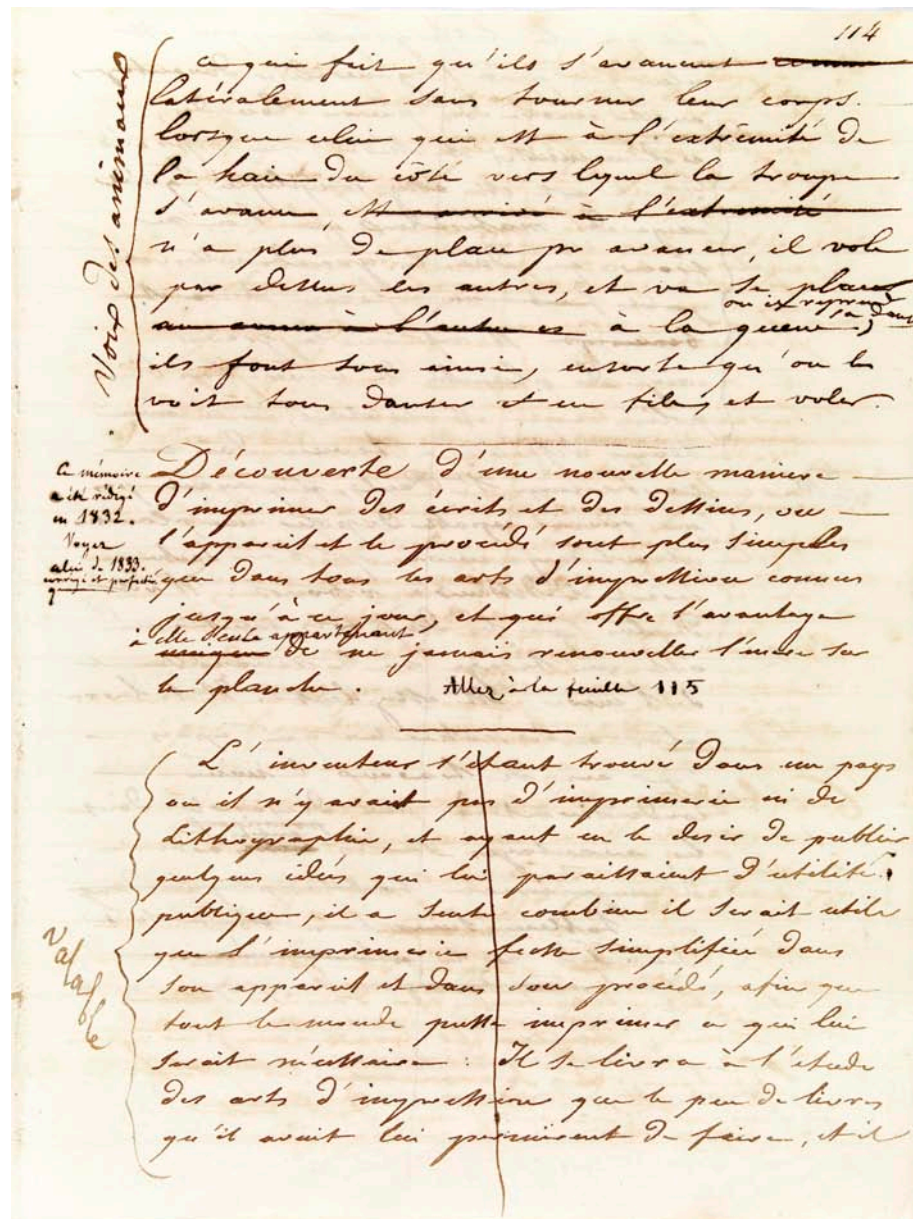 114
Voix des animaux
ce qui fait qu'ils s'avancent comme
latéralement sans tourner leur corps.
lorsque celui qui est à l'extrêmité de
la haie du côté vers lequel la troupe
s'avance, est arrivé à l'extremité
n'a plus de place pr avancer, il vole
par dessus les autres, et va se placer
ou il reprend sa danse
à la queue,
ils font tous ainsi, ensorte qu'on les
voit tous danser et en file, et voler.
Ce mémoire
a été rédigé
en 1832.
Voyez
celui de 1833.
corrigé et perfectioné
Découverte d'une nouvelle maniere
d'imprimer des écrits et des dessins, ou
l'appareil et le procédés sont plus simples
que dans tous les arts d'impression connus
jusqu'à ce jour, et qui offre l'avantage
à elle seule appartenant
unique de ne jamais renouveller l'encre sur
la planche. Allez à la feuille 115
L'inventeur s'étant trouvé dans un pays
ou il n'y avait pas d'imprimerie ni de
Lithographie, et ayant eu le desir de publier
quelques idées qui lui paraissaient d'utilité
publique, il a senti combien il serait utile
que l'imprimerie fusse simplifiée dans
son appareil et dans son procédés, afin que
tout le monde pusse imprimer ce qui lui
serait nécessaire : Il se livra à l'etude
des arts d'impression que le peu de livres
qu'il avait lui permirent de faire, et il